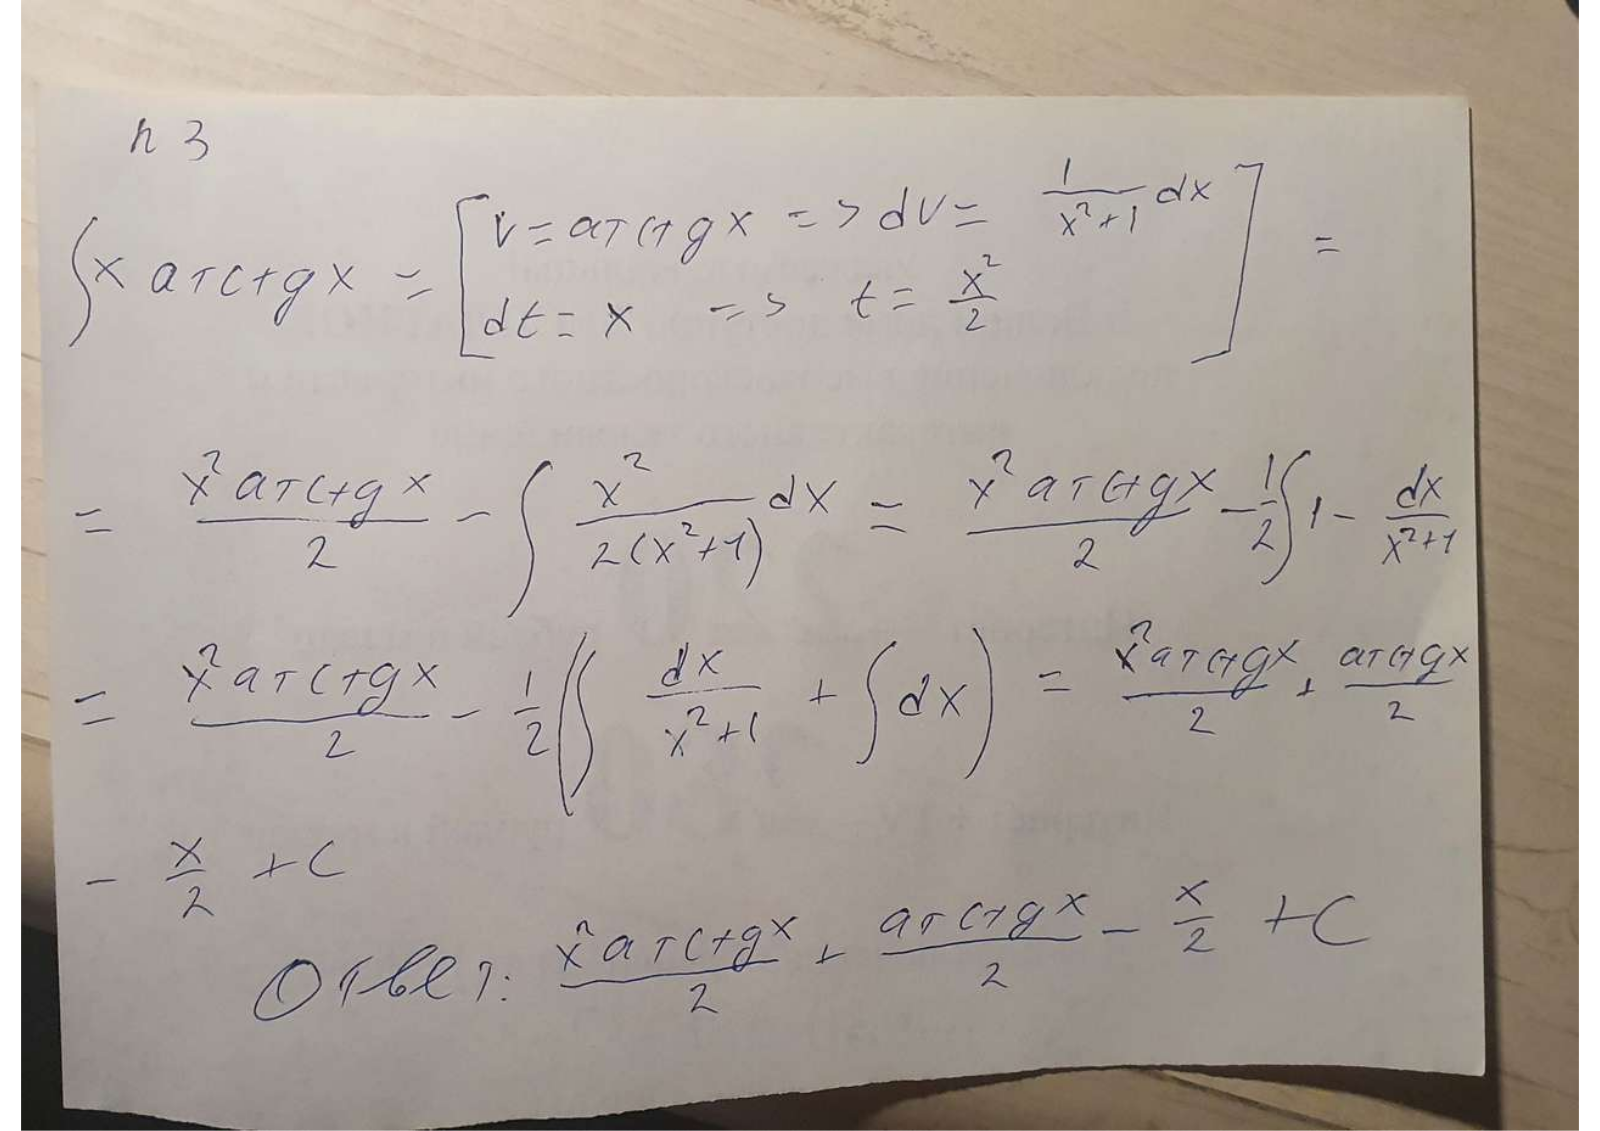 n 3
∫x arctgx = [v = arctgx => dv = 1/(x²+1) dx
dt = x => t = x²/2] =
= x² arctgx/2 - ∫ x²/(2(x²+1)) dx = x² arctgx/2 - 1/2 ∫ 1 - dx/(x²+1)
= x² arctgx/2 - 1/2 (∫ dx/(x²+1) + ∫ dx) = x² arctgx/2 + arctgx/2
- x/2 + C
Ответ: x² arctgx/2 + arctgx/2 - x/2 + C